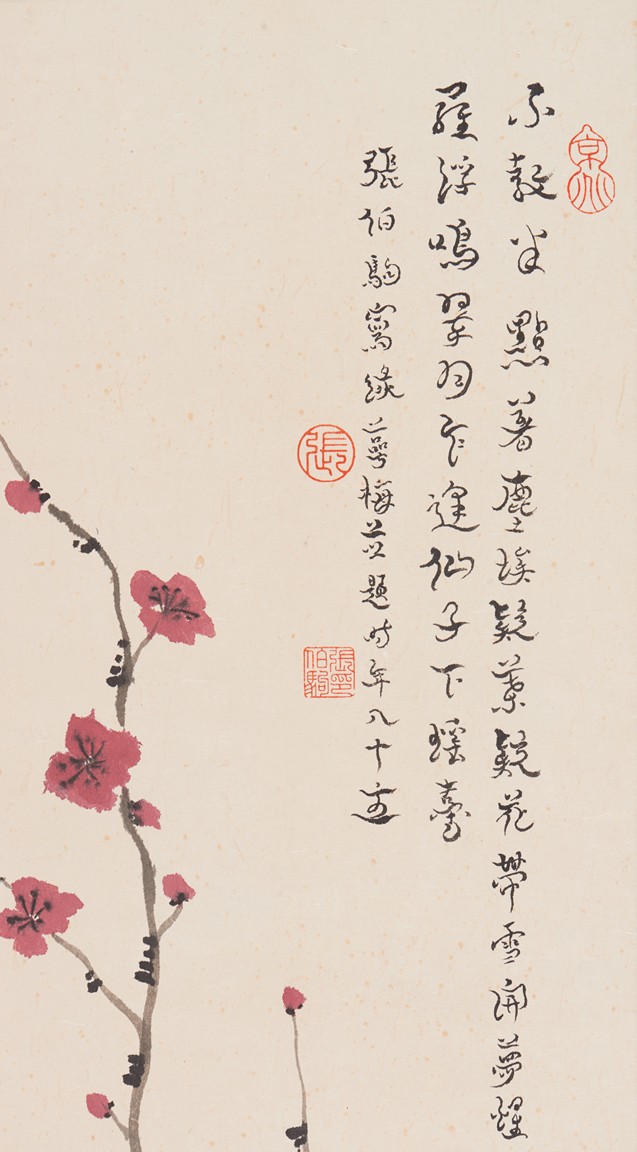 京兆
不教半點著塵埃疑葉疑花帶雪開夢醒
羅浮鳴翠羽乍逢仙子下瑤臺
張伯駒寫綠萼梅並題時年八十
張
伯駒